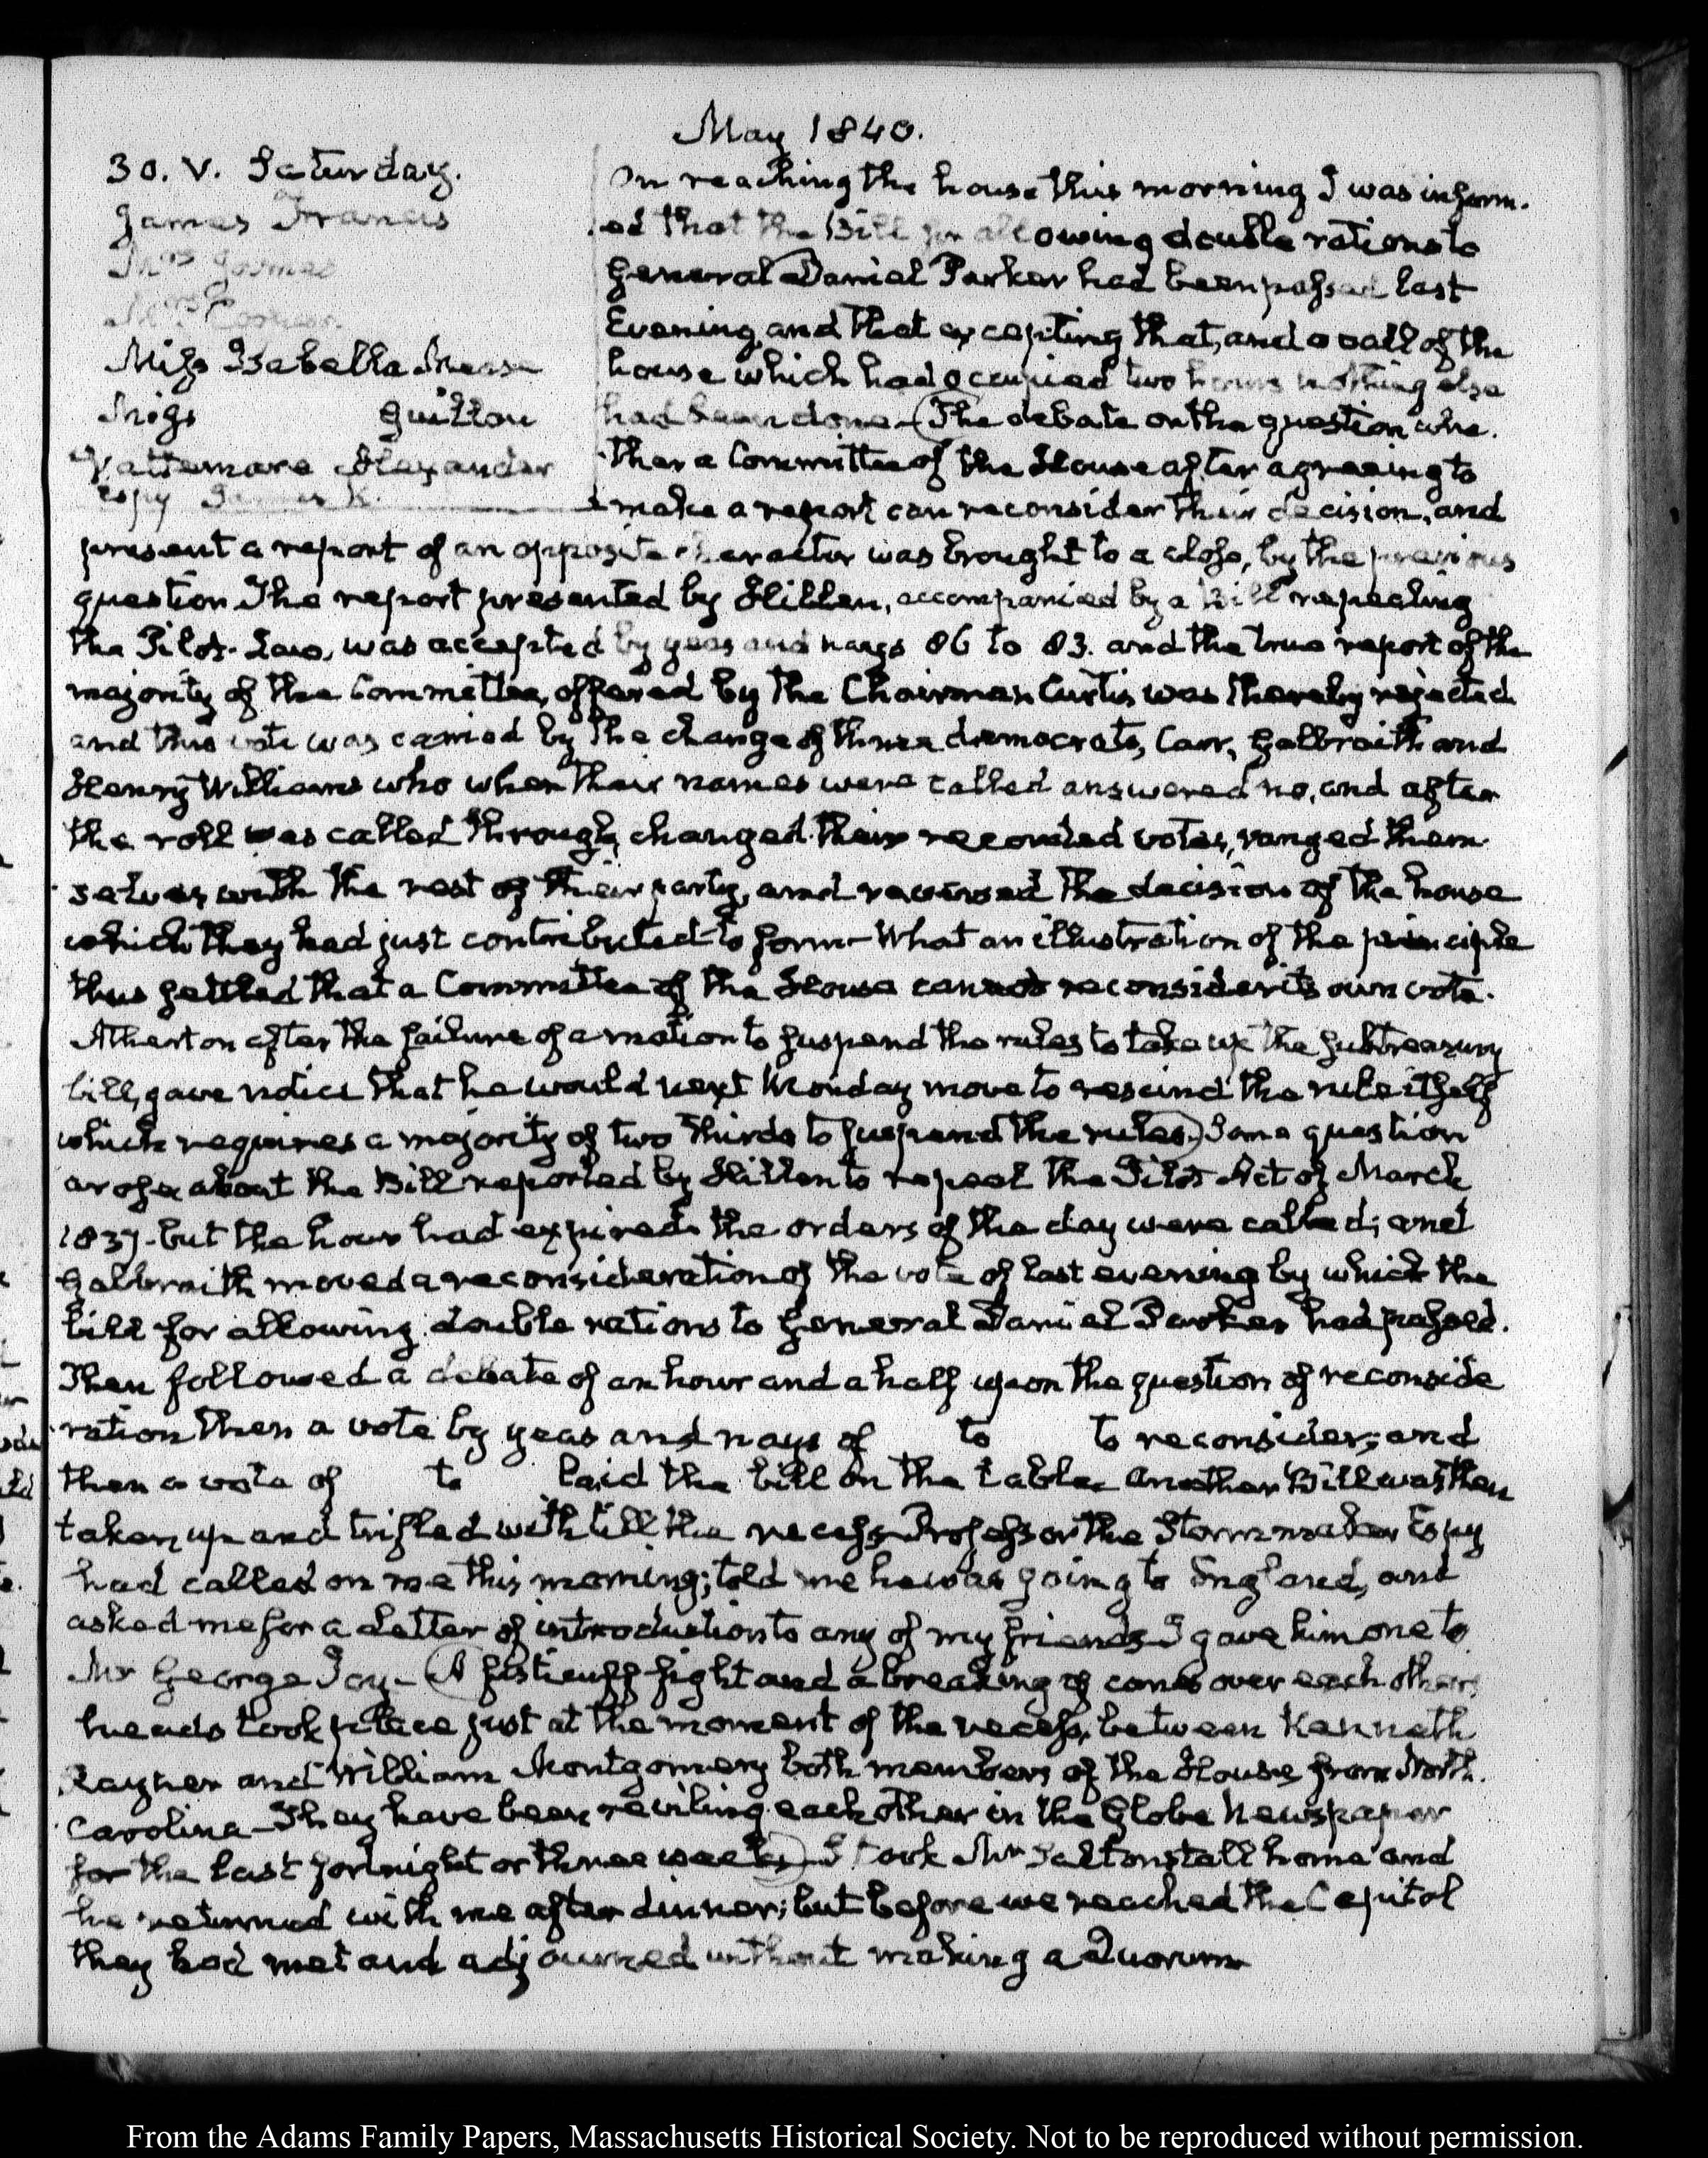 May 1840.
30. V. Saturday.
James Francis
Mrs James
Miss Isabella
Miss Guitton
Vattemare Alexander
Espy James K.
On reaching the house this morning I was inform-
ed that the Bill for allowing double rations to
General Daniel Parker had been passed last
Evening, and that excepting that, and a call of the
house which had occupied two hours nothing else
had been done— (The debate on the question whe-
ther a Committee of the House after agreeing to
make a report can reconsider their decision, and
present a report of an opposite character was brought to a close, by the previous
question The report presented by Hillen, accompanied by a Bill repealing
the Pilot-Law, was accepted by yeas and nays 86 to 83. and the true report of the
majority of the Committee, offered by the Chairman Curtis was thereby rejected
and this vote was carried by the change of three democrats, Carr, Galbraith and
Henry Williams who when their names were called answered no, and after
the roll was called through, changed their recorded votes, ranged them-
selves with the rest of their party, and reversed the decision of the house
which they had just contributed to form— What an illustration of the principle
thus settled that a Committee of the House cannot reconsider its own vote.
Atherton after the failure of a motion to suspend the rules to take up the subtreasury
bill, gave notice that he would next Monday move to rescind the rule itself
which requires a majority of two thirds to suspend the rules.) Some question
arose about the Bill reported by Hillen to repeal the Pilot Act of March
1837— but the hour had expired. the orders of the day were called; and
Galbraith moved a reconsideration of the vote of last evening by which the
bill for allowing double rations to General Daniel Parker had passed.
Then followed a debate of an hour and a half upon the question of reconside
ration then a vote by yeas and nays of to to reconsider; and
then a vote of to laid the bill on the table— Another Bill was then
taken up and trifled with till the recess— Professor the Storm maker Espy
had called on me this morning; told me he was going to England, and
asked me for a Letter of introduction to any of my friends— I gave him one to
Mr George Joy— (A fisticuff fight and a breaking of canes over each others
heads took place just at the moment of the recess, between Kenneth
Rayner and William Montgomery both members of the House from North-
Carolina— They have been reviling each other in the Globe Newspaper
for the last fortnight or three weeks)— I took Mr Saltonstall home and
he returned with me after dinner; but before we reached the Capitol
they had met and adjourned without making a Quorum—
From the Adams Family Papers, Massachusetts Historical Society. Not to be reproduced without permission.